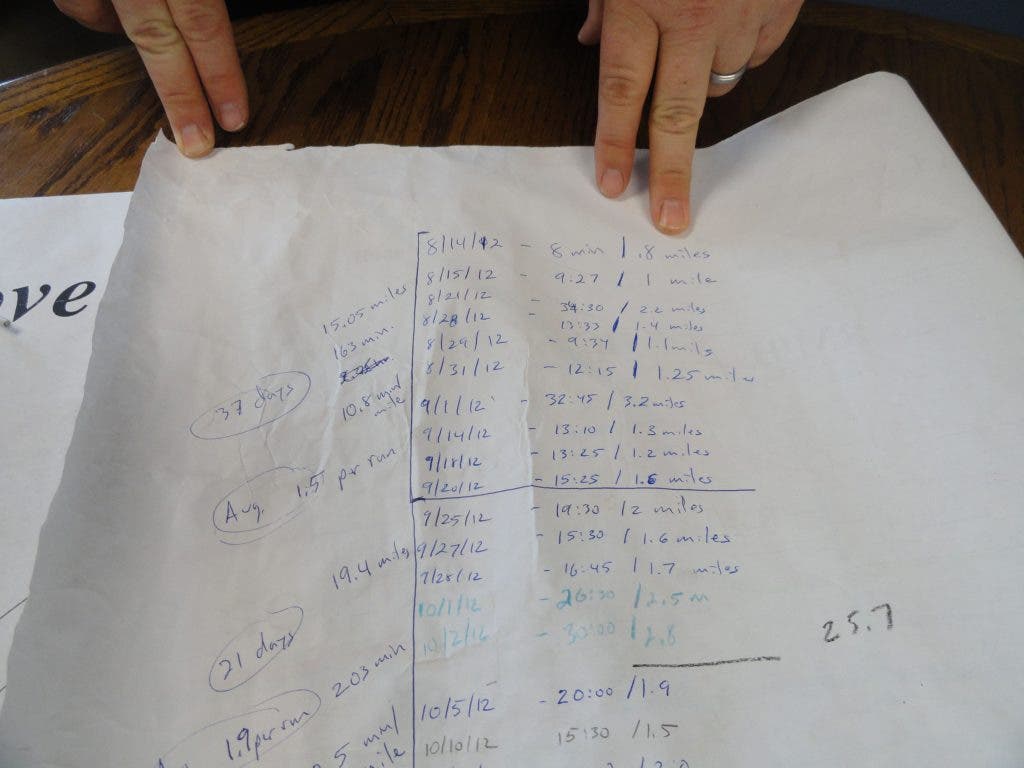 ove
8/14/12 - 8 min / .8 miles
8/15/12 - 9:27 / 1 mile
8/21/12 - 34:30 / 2.2 miles
8/28/12 - 13:33 / 1.4 miles
8/29/12 - 9:34 / 1.1 miles
8/31/12 - 12:15 / 1.25 miles
9/1/12 - 32:45 / 3.2 miles
9/14/12 - 13:10 / 1.3 miles
9/18/12 - 13:25 / 1.2 miles
9/20/12 - 15:25 / 1.6 miles
15.05 miles
163 min.
10.8 min/
mile
37 days
Avg. 1.51 per run
9/25/12 - 19:30 / 2 miles
9/27/12 - 15:30 / 1.6 miles
9/28/12 - 16:45 / 1.7 miles
10/1/12 - 26:30 / 2.5 m
10/2/12 - 30:00 / 2.8
25.7
10/5/12 - 20:00 / 1.9
10/10/12 15:30 / 1.5
19.4 miles
21 days
203 min
1.9 per run